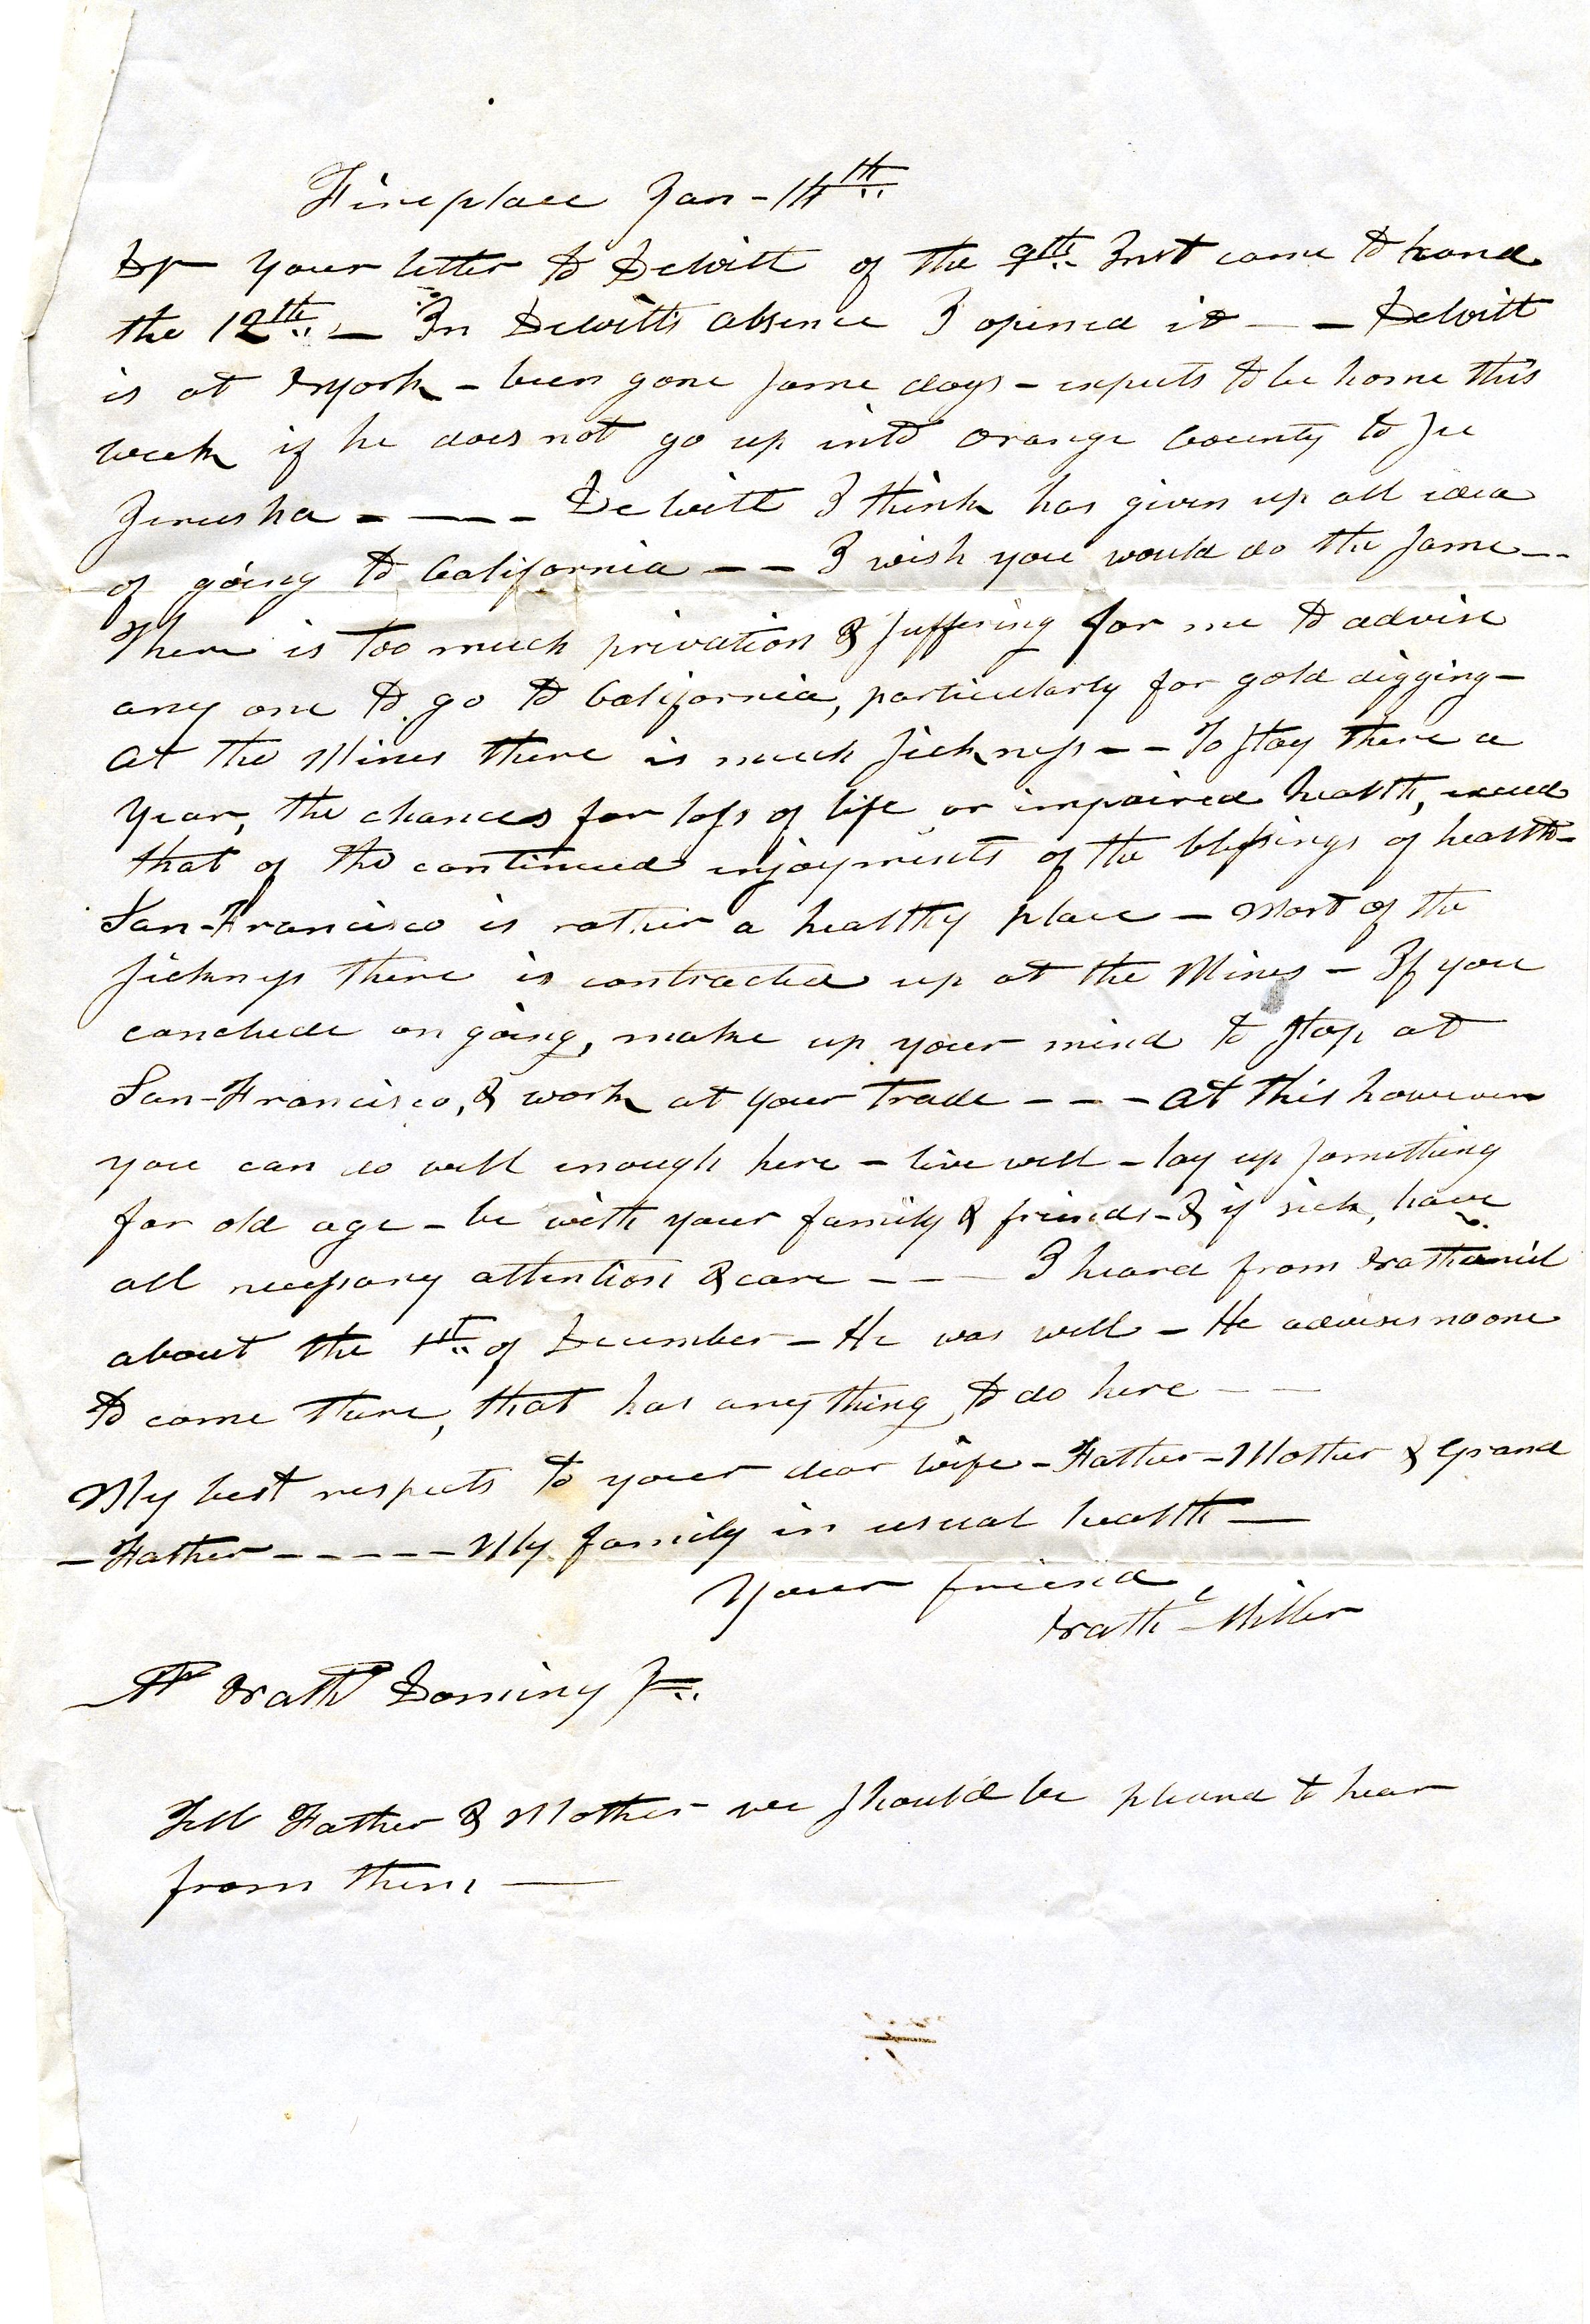 Fireplace Jan - 14th
Dr Your letter to DeWitt of the 9th Inst came to hand
the 12th — In DeWitts absence I opened it — — DeWitt
is at NYork — been gone some days — expects to be home this
week if he does not go up into Orange County to see
Jerusha - — — - DeWitt I think has given up all idea
of going to California — — I wish you would do the same — -
There is too much privation & suffering for me to advise
any one to go to California, particularly for gold digging —
At the Mines there is much sickness - - To stay there a
Year, the chances for loss of life or impaired health, exceed
that of the continued enjoyments of the blessings of health —
San-Francisco is rather a healthy place — Most of the
sickness there is contracted up at the Mines — If you
conclude on going, make up your mind to stop at
San-Francisco, & work at your trade - - - At this however
you can do well enough here — live well — lay up something
for old age — be with your family & friends — & if sick, have
all necessary attention & care - — — I heard from Nathaniel
about the 1st of December — He was well — He advises no one
to come there, that has any thing to do here — —
My best respects to your dear wife — Father — Mother & Grand
— Father - - - - - My family in usual health —
Your friend
Nathl Miller
Mr Nathl Dominy Jr
Tell Father & Mother we should be pleased to hear
from them —